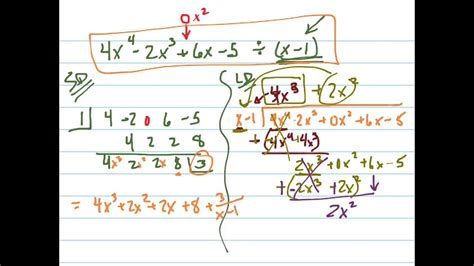 0x²
4x⁴ - 2x³ + 6x - 5 ÷ (x-1)
SD
1| 4 -2 0 6 -5
4 2 2 8
4x³ 2x² 2x 8 3
= 4x³ + 2x² + 2x + 8 + 3/x-1
LD
4x³ + 2x²
x-1 | 4x⁴ - 2x³ + 0x² + 6x - 5
+ (-4x⁴ + 4x³)
2x³ + 0x² + 6x - 5
+ (-2x³ + 2x)²
2x²